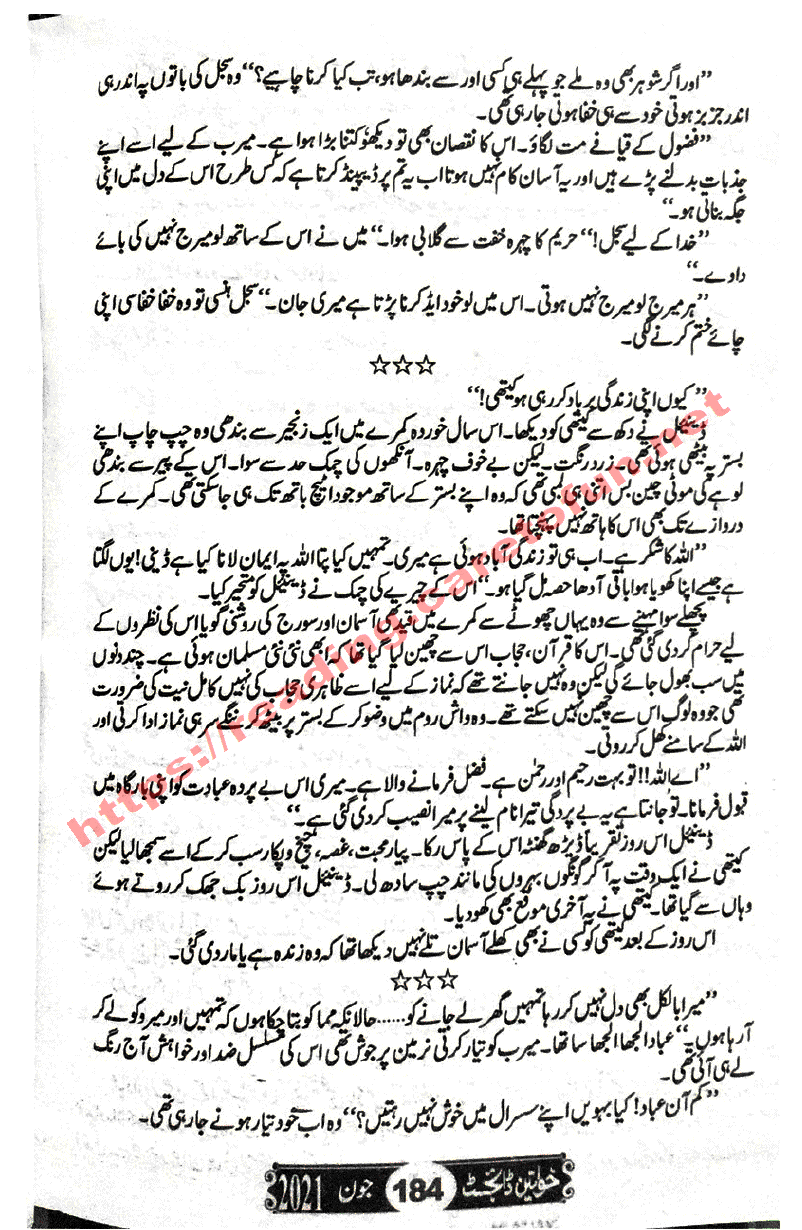 ”اور اگر شوہر بھی وہ ملے جو پہلے ہی کسی اور سے بندھا ہو، تب کیا کرنا چاہیے؟“ وہ سجل کی باتوں پہ اندر ہی
اندر جزبز ہوتی خود سے ہی خفا ہوئی جا رہی تھی۔
”فضول کے قیافے مت لگاؤ۔ اس کا نقصان بھی تو دیکھو کتنا بڑا ہوا ہے۔ میرب کے لیے اسے اپنے
جذبات بدلنے پڑے ہیں اور یہ آسان کام نہیں ہوتا اب یہ تم پر ڈیپینڈ کرتا ہے کہ کس طرح اس کے دل میں اپنی
جگہ بناتی ہو۔“
”خدا کے لیے سجل!“ حریم کا چہرہ خفت سے گلابی ہوا۔ ”میں نے اس کے ساتھ لو میرج نہیں کی بائے
دا وے۔“
”ہر میرج لو میرج نہیں ہوتی۔ اس میں لو خود ایڈ کرنا پڑتا ہے میری جان۔“ سجل ہنسی تو وہ خفا خفا سی اپنی
چائے ختم کرنے لگی۔
☆☆☆
”کیوں اپنی زندگی برباد کر رہی ہو کیتھی!“
ڈینیئل نے دکھ سے کیتھی کو دیکھا۔ اس سال خوردہ کمرے میں ایک زنجیر سے بندھی وہ چپ چاپ اپنے
بستر پہ بیٹھی ہوئی تھی۔ زرد رنگت۔ لیکن بے خوف چہرہ۔ آنکھوں کی چمک حد سے سوا۔ اس کے پیر سے بندھی
لوہے کی موٹی چین بس اتنی ہی لمبی تھی کہ وہ اپنے بستر کے ساتھ موجود اٹیچ باتھ تک ہی جا سکتی تھی۔ کمرے کے
دروازے تک بھی اس کا ہاتھ نہیں پہنچتا تھا۔
”اللہ کا شکر ہے۔ اب ہی تو زندگی آباد ہوئی ہے میری۔ تمہیں کیا پتا اللہ پہ ایمان لانا کیا ہے ڈینی! یوں لگتا
ہے جیسے اپنا کھویا ہوا باقی آدھا حصہ مل گیا ہو۔“ اس کے چہرے کی چمک نے ڈینیئل کو متحیر کیا۔
پچھلے سوا مہینے سے وہ یہاں چھوٹے سے کمرے میں قید تھی آسمان اور سورج کی روشنی گویا اس کی نظروں کے
لیے حرام کر دی گئی تھی۔ اس کا قرآن، حجاب اس سے چھین لیا گیا تھا کہ ابھی نئی نئی مسلمان ہوئی ہے۔ چند دنوں
میں سب بھول جائے گی لیکن وہ نہیں جانتے تھے کہ نماز کے لیے اسے ظاہری حجاب کی نہیں کامل نیت کی ضرورت
تھی جو وہ لوگ اس سے چھین نہیں سکتے تھے۔ وہ واش روم میں وضو کر کے بستر پر بیٹھ کر ننگے سر ہی نماز ادا کرتی اور
اللہ کے سامنے کھل کر روتی۔
”اے اللہ!! تو بہت رحیم اور رحمٰن ہے۔ فضل فرمانے والا ہے۔ میری اس بے پردہ عبادت کو اپنی بارگاہ میں
قبول فرمانا۔ تو جانتا ہے یہ بے پردگی تیرا نام لینے پر میرا نصیب کر دی گئی ہے۔“
ڈینیئل اس روز تقریباً ڈیڑھ گھنٹہ اس کے پاس رکا۔ پیار محبت، غصہ، چیخ و پکار سب کر کے اسے سمجھا لیا لیکن
کیتھی نے ایک وقت پہ آ کر گونگوں بہروں کی مانند چپ سادھ لی۔ ڈینیئل اس روز بک جھک کر روتے ہوئے
وہاں سے گیا تھا۔ کیتھی نے یہ آخری موقع بھی کھو دیا۔
اس روز کے بعد کیتھی کو کسی نے بھی کھلے آسمان تلے نہیں دیکھا تھا کہ وہ زندہ ہے یا مار دی گئی۔
☆☆☆
”میرا بالکل بھی دل نہیں کر رہا تمہیں گھر لے جانے کو...... حالانکہ مما کو بتا چکا ہوں کہ تمہیں اور میرو کو لے کر
آ رہا ہوں۔“ عباد الجھا الجھا سا تھا۔ میرب کو تیار کرتی نرمین پر جوش تھی اس کی مسلسل ضد اور خواہش آج رنگ
لے ہی آئی تھی۔
”کم آن عباد! کیا بہویں اپنے سسرال میں خوش نہیں رہتیں؟“ وہ اب خود تیار ہونے جا رہی تھی۔
خواتین ڈائجسٹ 184 جون 2021
https://reading.caretofun.net